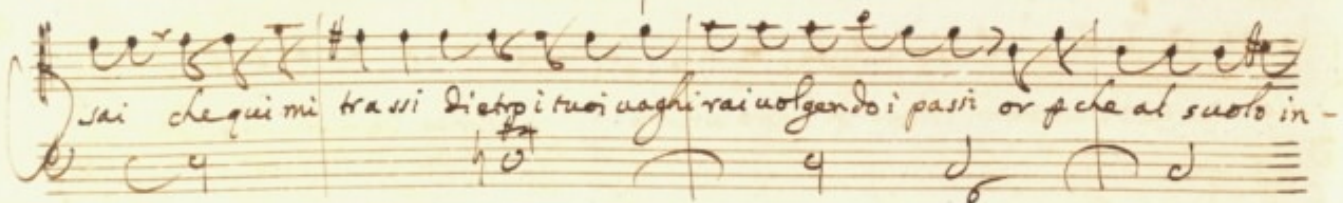 sai che qui mi trassi dietro i tuoi vaghi rai volgendo i passi or che al suolo in-
6